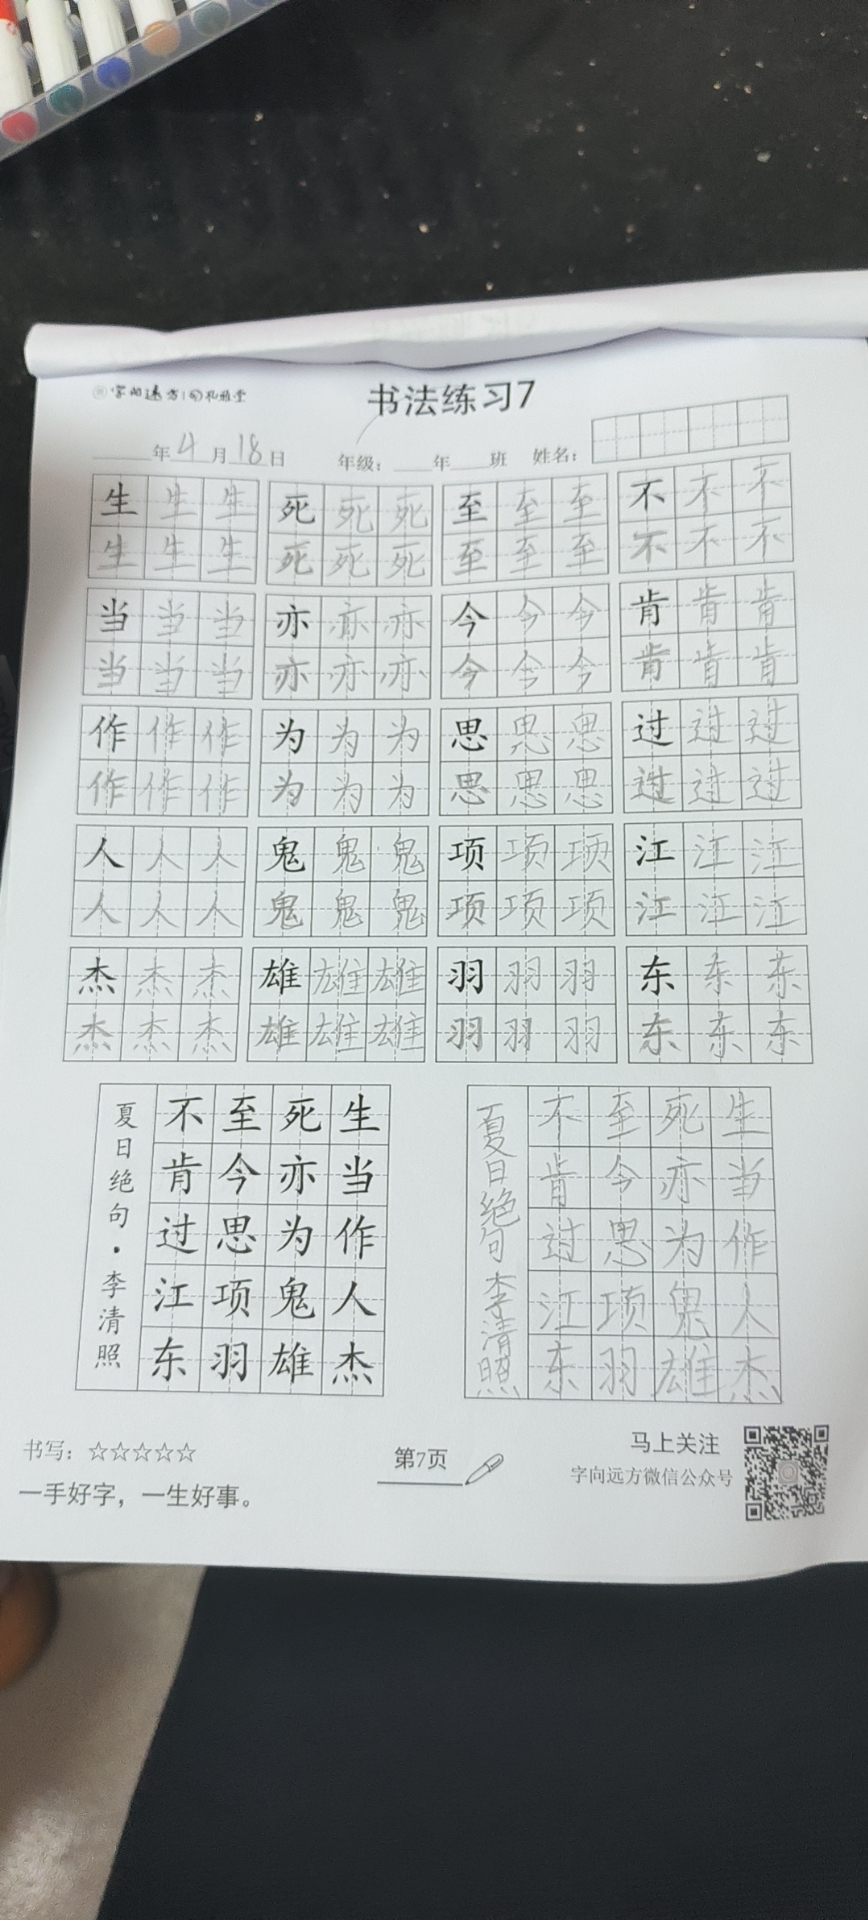 书法练习7
年4月18日 年级： 年 班 姓名：
生生生 死死死 至至至 不不不
生生生 死死死 至至至 不不不
当当当 亦亦亦 今今今 肯肯肯
当当当 亦亦亦 今今今 肯肯肯
作作作 为为为 思思思 过过过
作作作 为为为 思思思 过过过
人人人 鬼鬼鬼 项项项 江江江
人人人 鬼鬼鬼 项项项 江江江
杰杰杰 雄雄雄 羽羽羽 东东东
杰杰杰 雄雄雄 羽羽羽 东东东
生当作人杰
死亦为鬼雄
至今思项羽
不肯过江东
夏日绝句·李清照
生当作人杰
死亦为鬼雄
至今思项羽
不肯过江东
夏日绝句 李清照
书写：☆☆☆☆☆
一手好字，一生好事。
第7页
马上关注
字向远方微信公众号